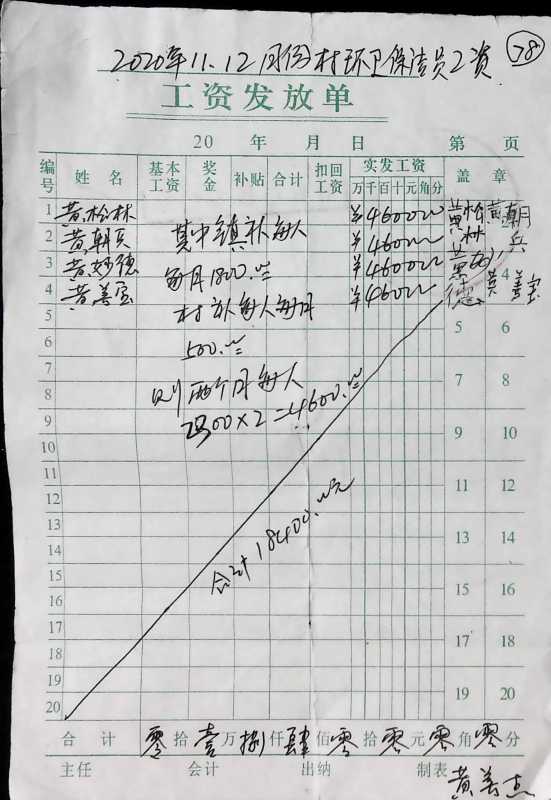 2020年11.12月份村环卫保洁员工资
78
工资发放单
20 年 月 日 第 页
编号 姓名 基本工资 奖金 补贴 合计 扣回工资 实发工资 盖章
万 千 百 十 元 角 分
1 黄松林 ¥460000 黄松林 黄朝兵
2 黄朝兵 其中镇补每人 ¥460000
3 黄妙德 ¥460000 黄妙德
4 黄善宝 每月1800.00 ¥460000 黄善宝 4
5 村补每人每月 5 6
6 500.00
7 则两个月每人 7 8
8 2300×2=4600.00
9 9 10
10
11 11 12
12 合计18400.00元
13 13 14
14
15 15 16
16
17 17 18
18
19 19 20
20
合计 零拾壹万捌仟肆佰零拾零元零角零分
主任 会计 出纳 制表 黄善